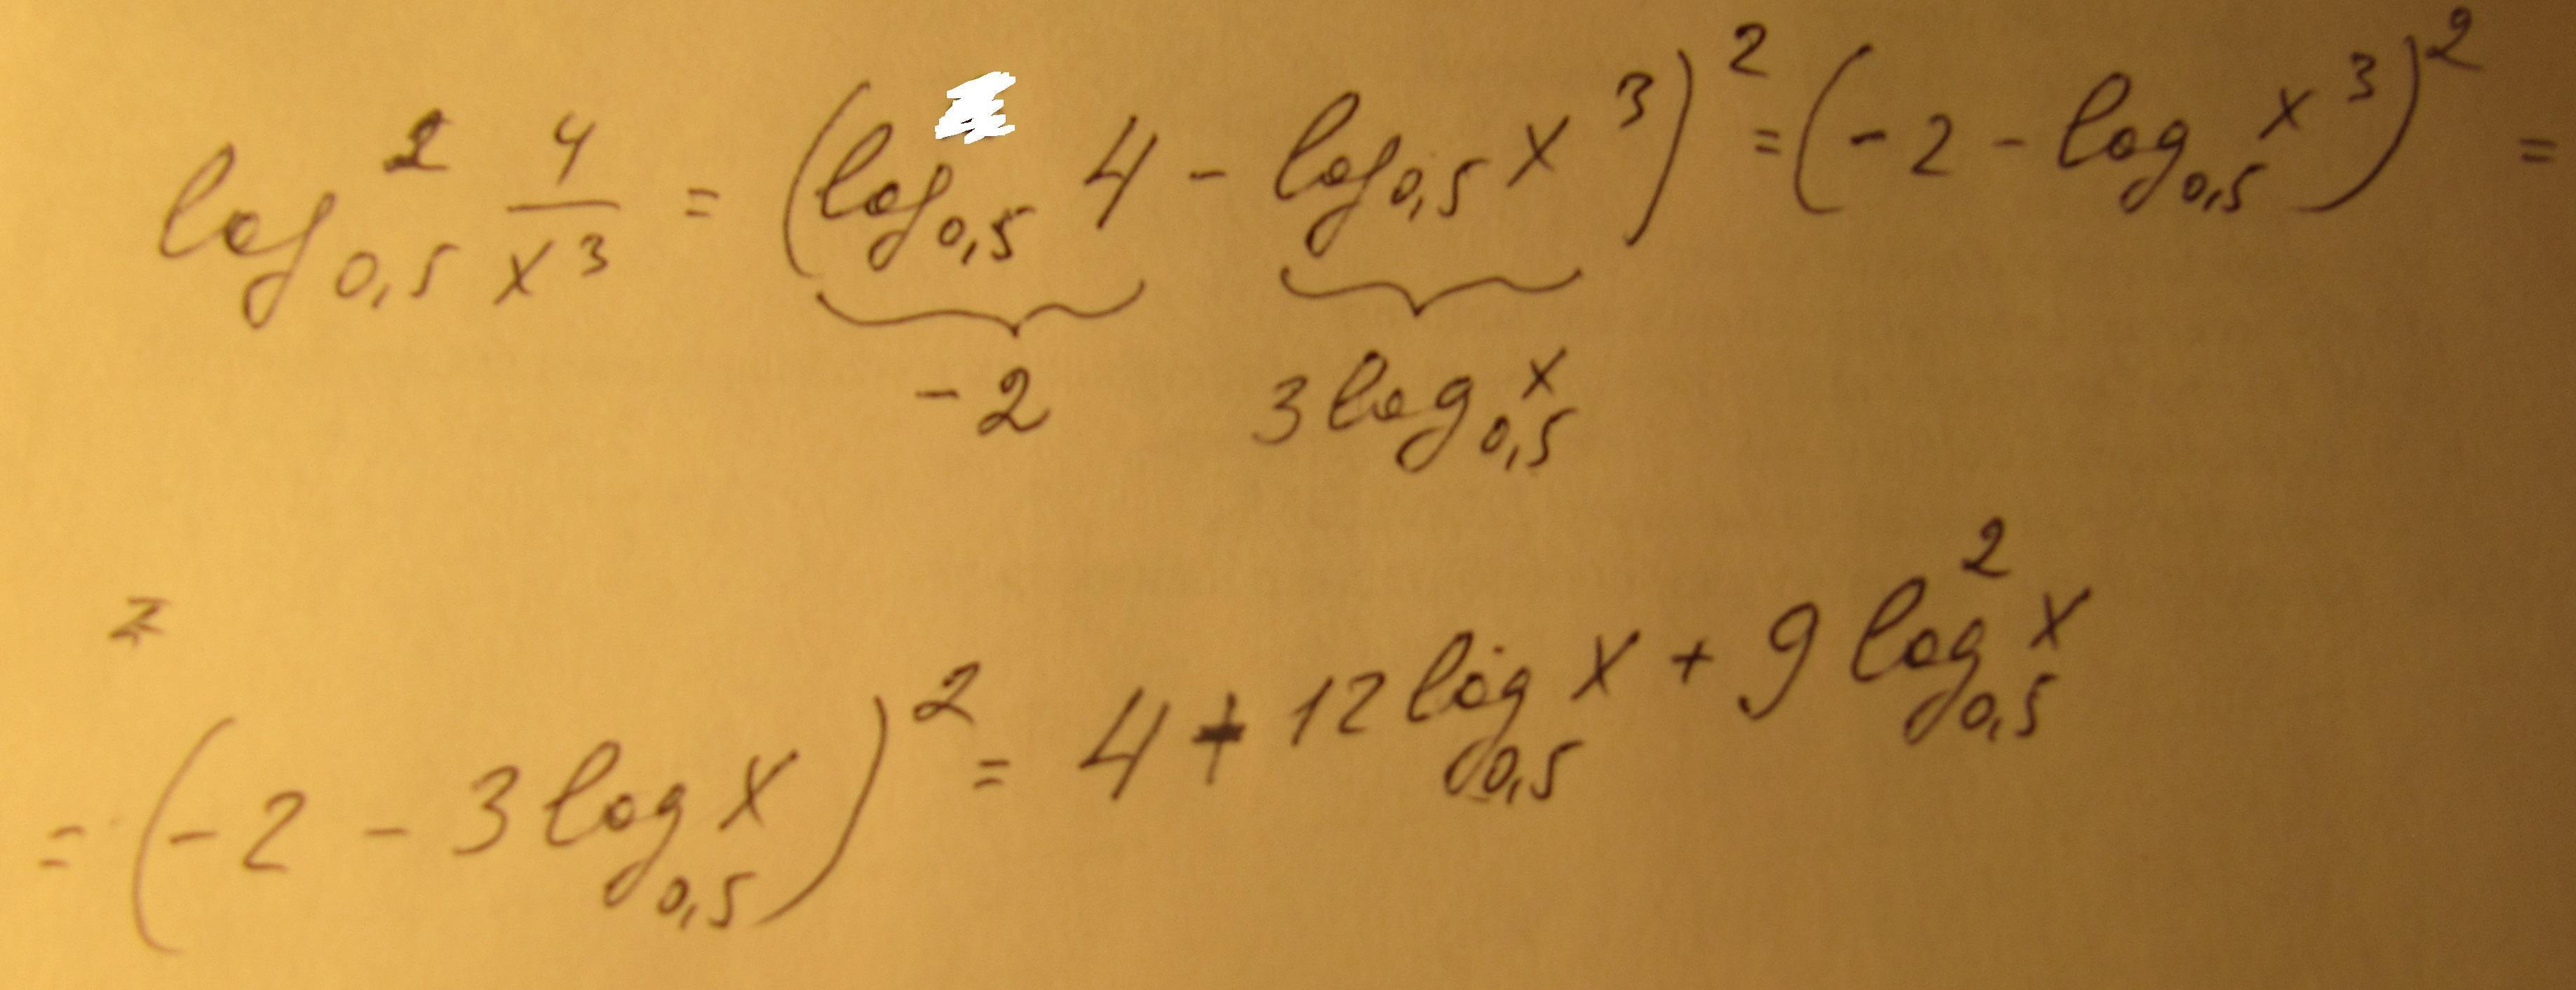 log²₀,₅ 4/x³ = (log₀,₅ 4 - log₀,₅ x³)² = (-2 - log₀,₅ x³)² =
-2 3 log₀,₅ x
= (-2 - 3 log₀,₅ x)² = 4 + 12 log₀,₅ x + 9 log²₀,₅ x